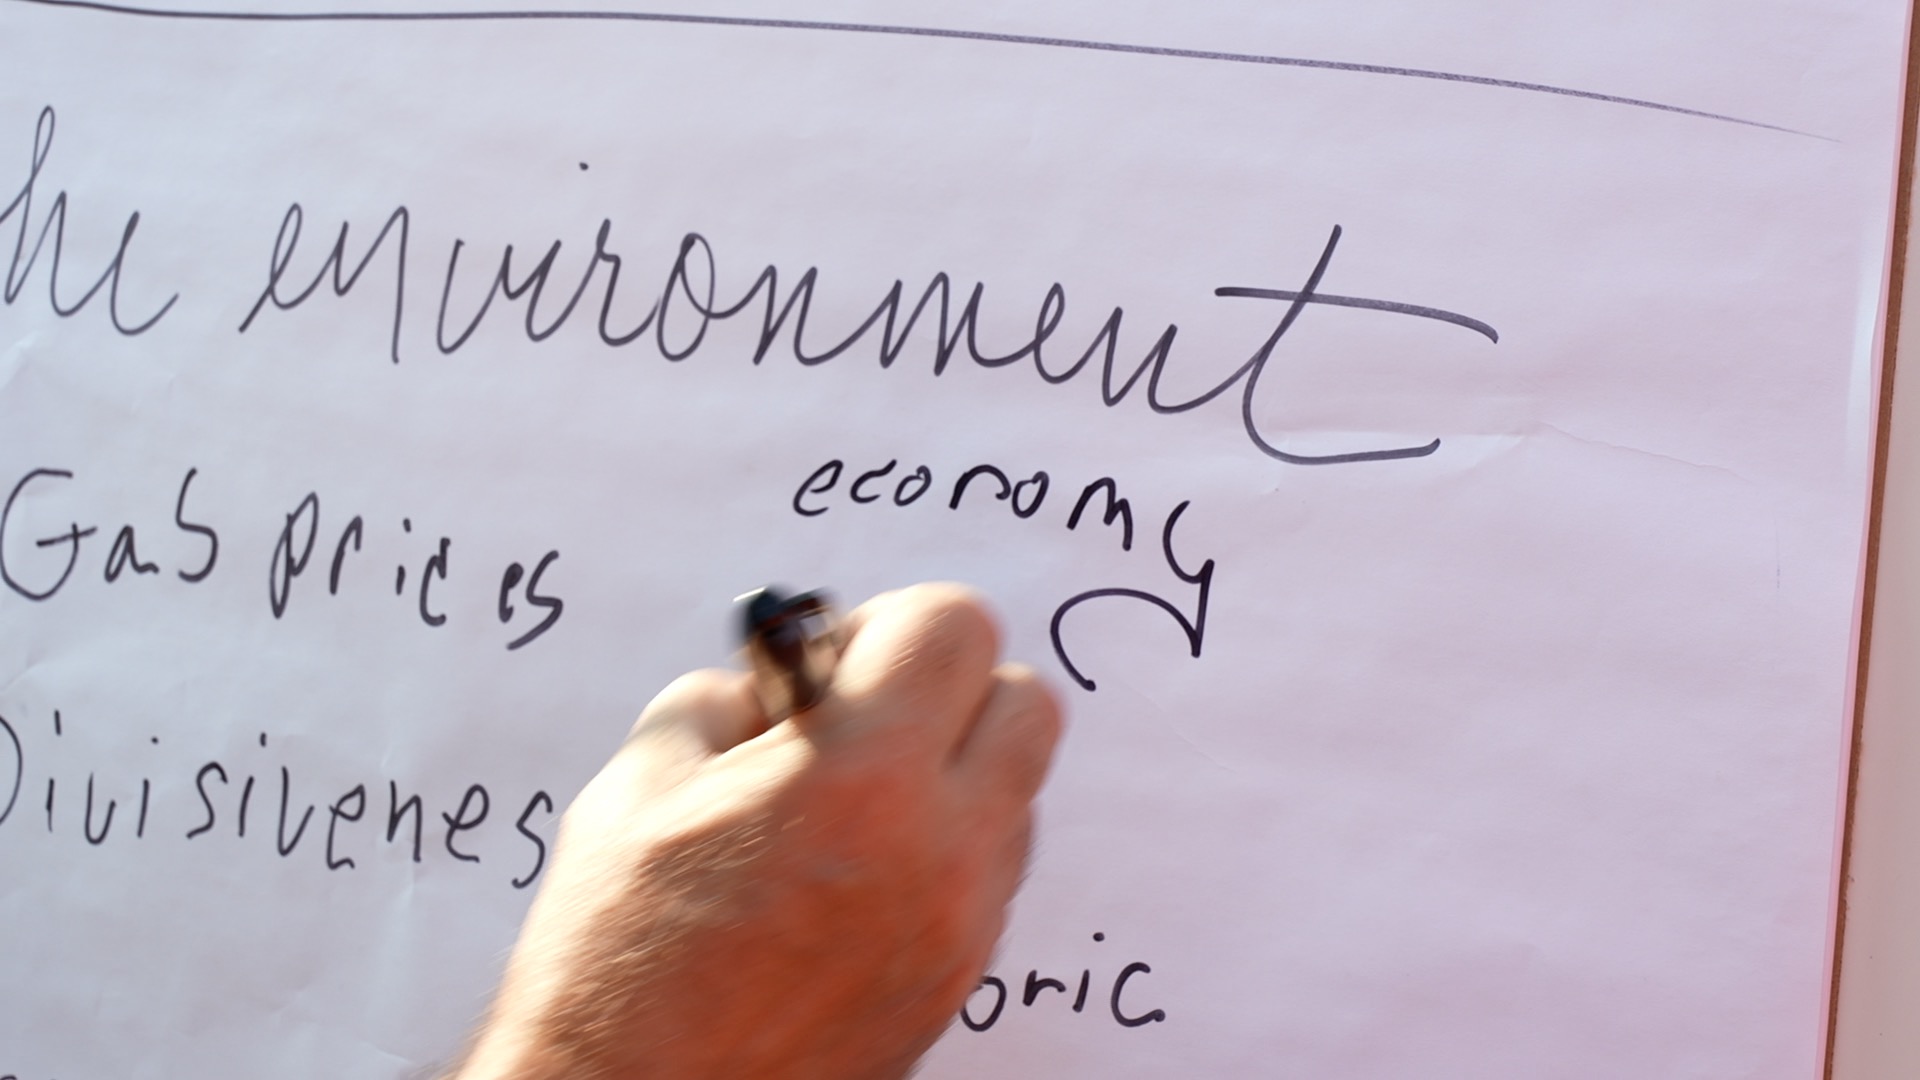 he environment
economy
Gas prices
Divisivenes
oric